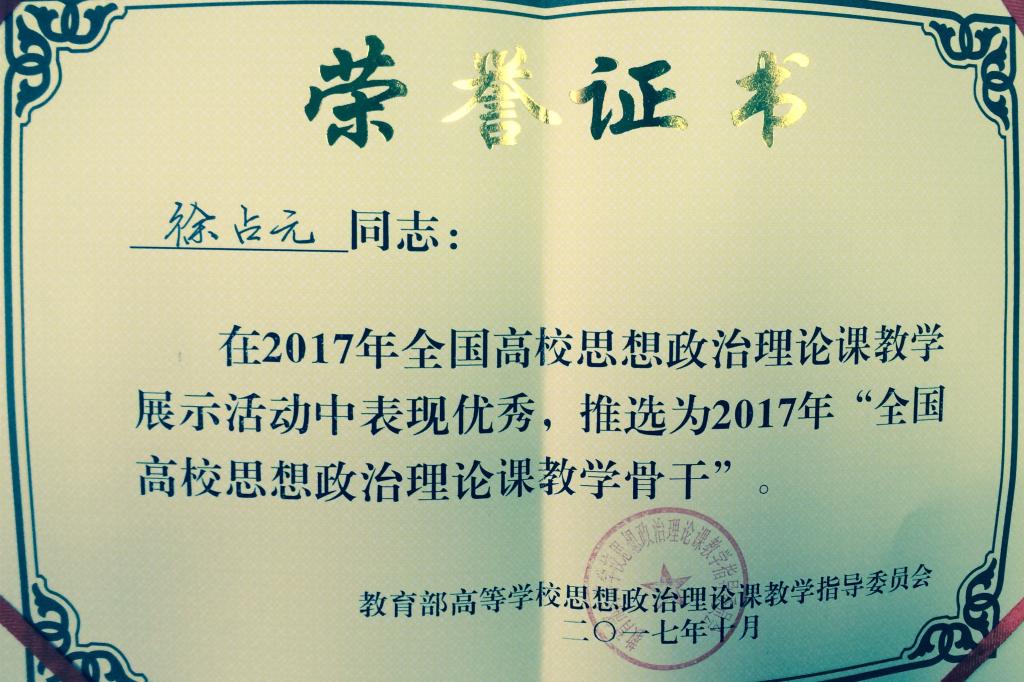 荣誉证书
徐占元同志：
在2017年全国高校思想政治理论课教学
展示活动中表现优秀，推选为2017年“全国
高校思想政治理论课教学骨干”。
教育部高等学校思想政治理论课教学指导委员会
二〇一七年十月